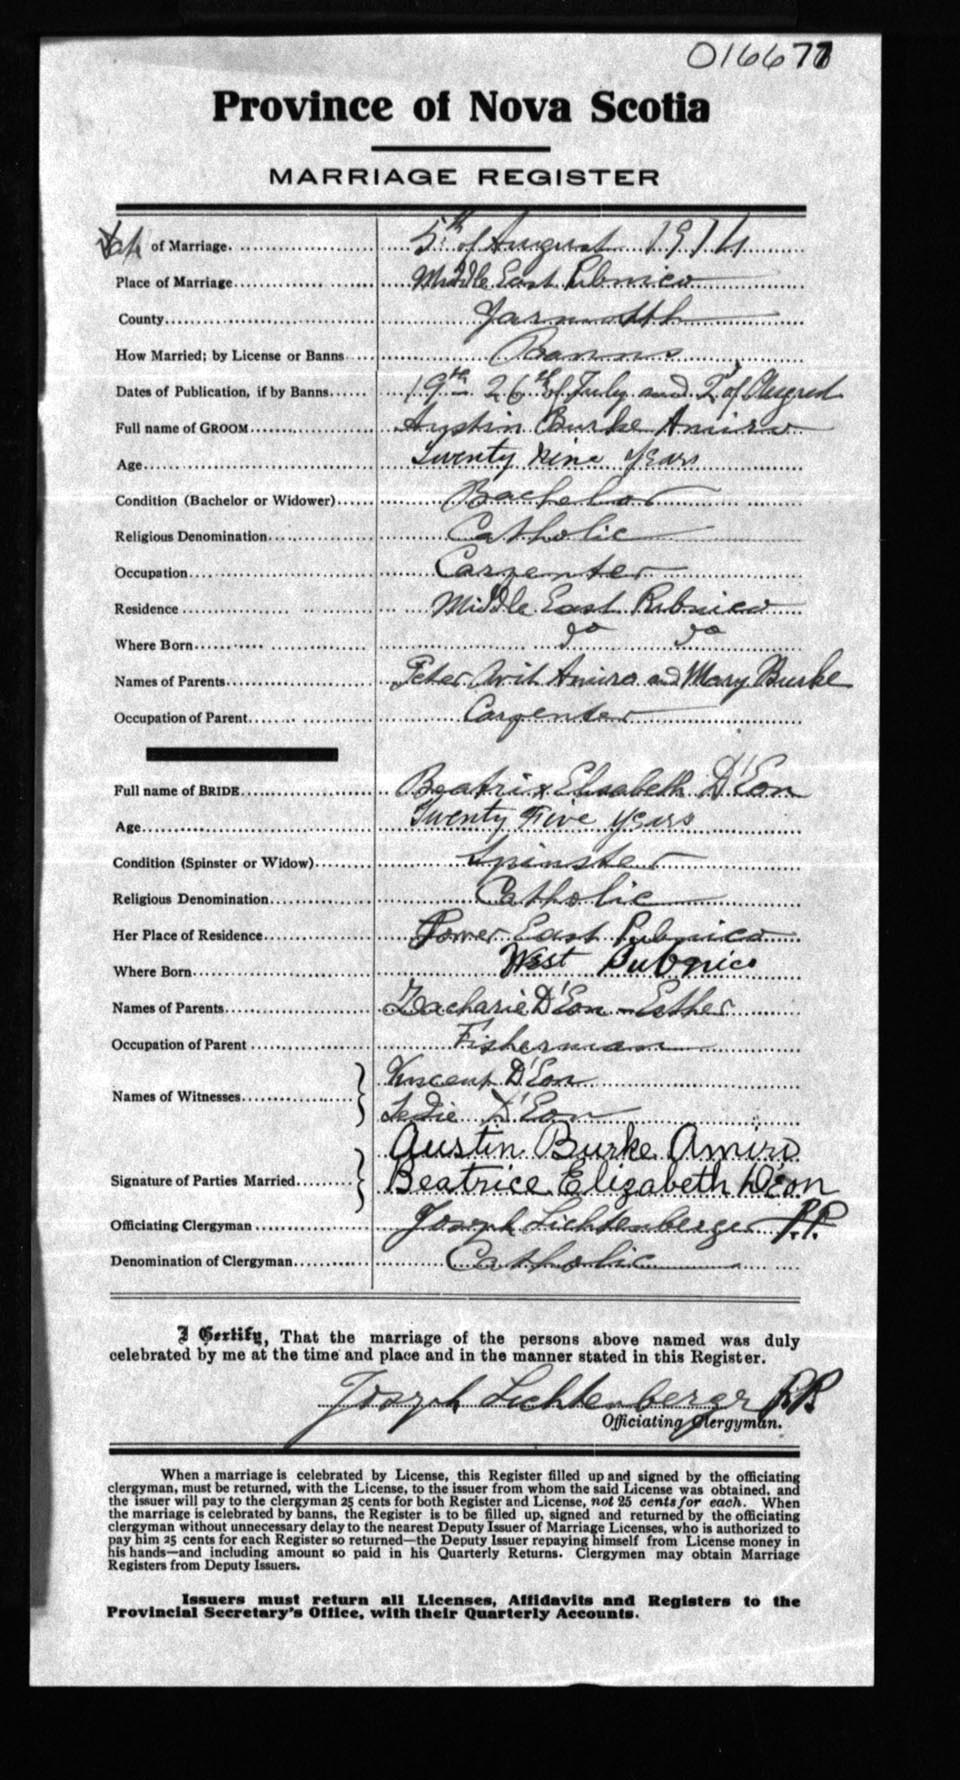 016677
Province of Nova Scotia
MARRIAGE REGISTER
Date of Marriage. 5th of August 1914
Place of Marriage Middle East Pubnico
County Yarmouth
How Married; by License or Banns Banns
Dates of Publication, if by Banns 19th 26th of July and 2d of August
Full name of GROOM Austin Burke Amiro
Age Twenty Nine Years
Condition (Bachelor or Widower) Bachelor
Religious Denomination Catholic
Occupation Carpenter
Residence Middle East Pubnico
Where Born do do
Names of Parents Peter Amiro and Mary Burke
Occupation of Parent Carpenter
Full name of BRIDE Beatrix Elisabeth D'Eon
Age Twenty Five Years
Condition (Spinster or Widow) Spinster
Religious Denomination Catholic
Her Place of Residence Lower East Pubnico
Where Born West Pubnico
Names of Parents Zacharie D'Eon - Esther
Occupation of Parent Fisherman
Names of Witnesses Vincent D'Eon
D'Eon
Signature of Parties Married Austin Burke Amiro
Beatrice Elizabeth D'Eon
Officiating Clergyman Joseph Lichtenberger P.P.
Denomination of Clergyman Catholic
I Certify, That the marriage of the persons above named was duly
celebrated by me at the time and place and in the manner stated in this Register.
Joseph Lichtenberger P.P.
Officiating Clergyman.
When a marriage is celebrated by License, this Register filled up and signed by the officiating
clergyman, must be returned, with the License, to the issuer from whom the said License was obtained, and
the issuer will pay to the clergyman 25 cents for both Register and License, not 25 cents for each. When
the marriage is celebrated by banns, the Register is to be filled up, signed and returned by the officiating
clergyman without unnecessary delay to the nearest Deputy Issuer of Marriage Licenses, who is authorized to
pay him 25 cents for each Register so returned—the Deputy Issuer repaying himself from License money in
his hands—and including amount so paid in his Quarterly Returns. Clergymen may obtain Marriage
Registers from Deputy Issuers.
Issuers must return all Licenses, Affidavits and Registers to the
Provincial Secretary's Office, with their Quarterly Accounts.